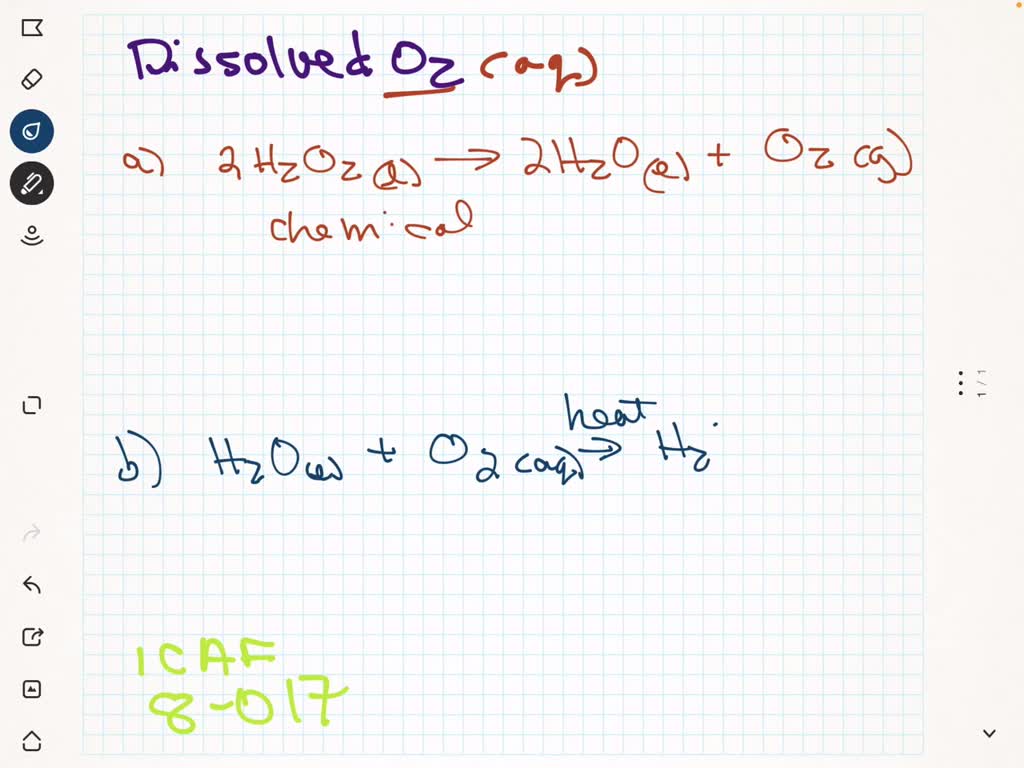 Dissolved O2 (aq)
a) 2H2O2(l) → 2H2O(l) + O2(g)
chemical
heat
b) H2O(l) + O2(aq) → H2
ICAF
8-017
1/1